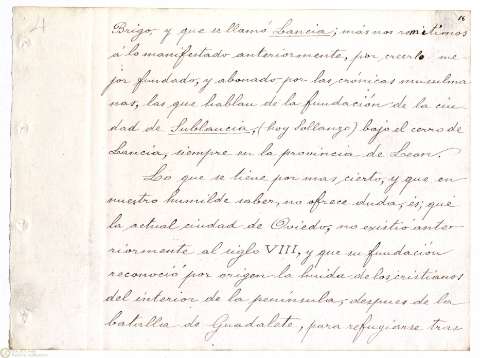 16
Brigo, y que se llamó Lancia; más nos remitimos
á lo manifestado anteriormente, por creerlo me
jor fundado, y abonado por las crónicas musulma
nas, las que hablan de la fundación de la ciu
dad de Sublancia, (hoy Sollanzo) bajo el cerro de
Lancia, siempre en la provincia de Leon.
Lo que se tiene por mas cierto, y que en
nuestro humilde saber, no ofrece duda, es, que
la actual ciudad de Oviedo, no existió ante
riormente al siglo VIII, y que su fundación
reconoció por origen la huida de los cristianos
del interior de la península, despues de la
batalla de Guadalete, para refugiarse tras